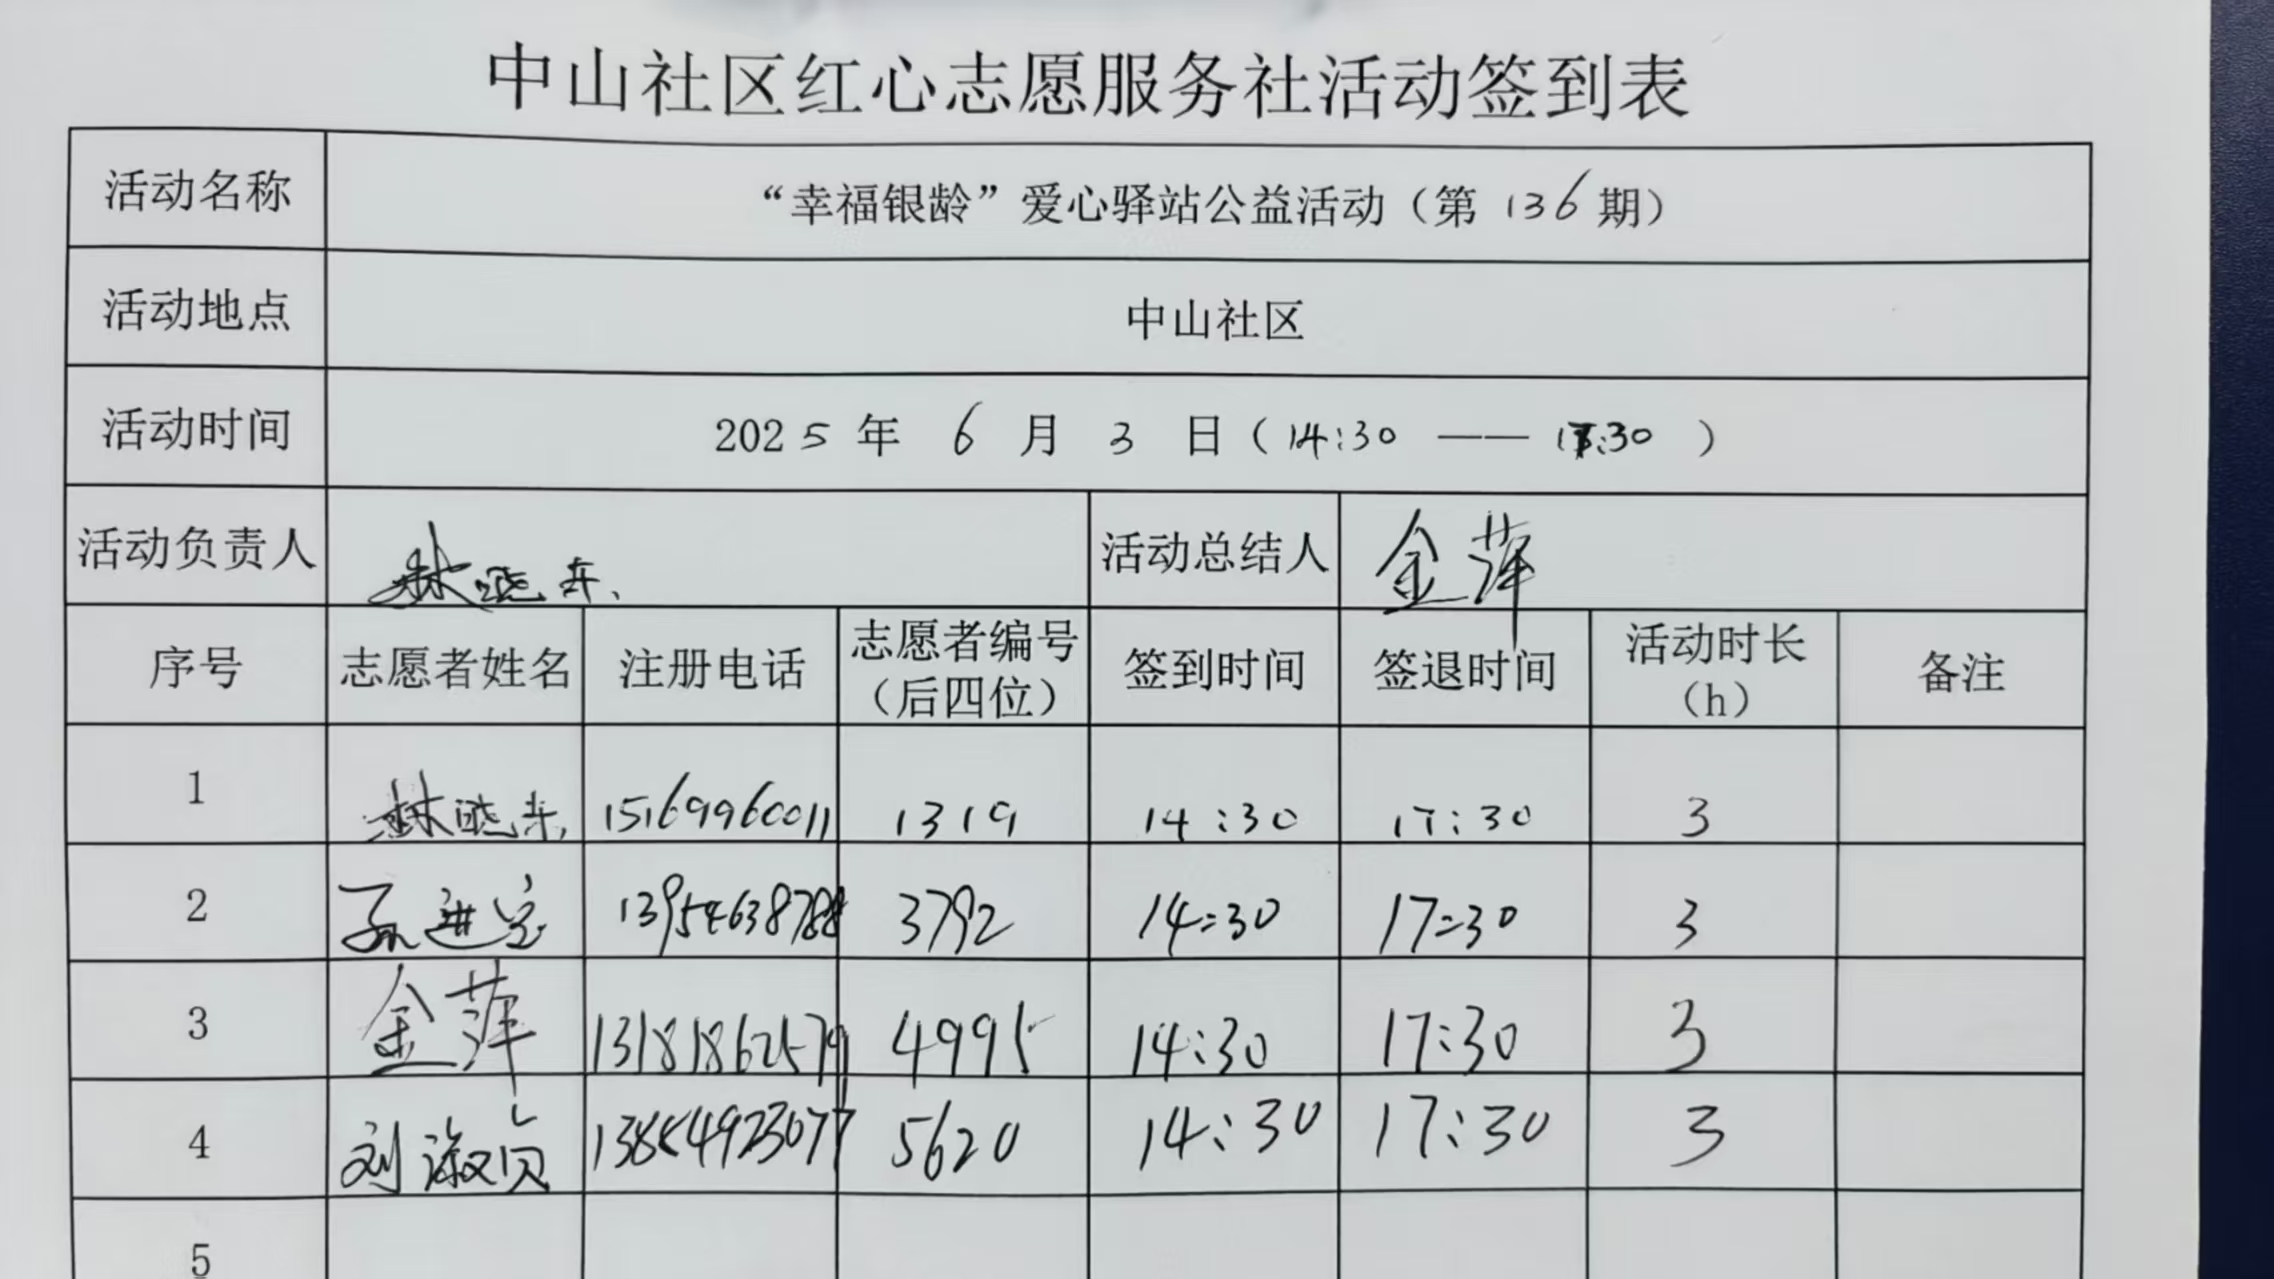 中山社区红心志愿服务社活动签到表
活动名称 “幸福银龄”爱心驿站公益活动（第 136 期）
活动地点 中山社区
活动时间 2025 年 6 月 3 日（14:30 —— 17:30 ）
活动负责人 林晓东 活动总结人 金萍
序号 志愿者姓名 注册电话 志愿者编号（后四位） 签到时间 签退时间 活动时长（h） 备注
1 林晓东 15169960011 1319 14:30 17:30 3
2 孙进宝 13954638788 3792 14:30 17:30 3
3 金萍 13181862579 4995 14:30 17:30 3
4 刘淑贞 5620 14:30 17:30 3
5